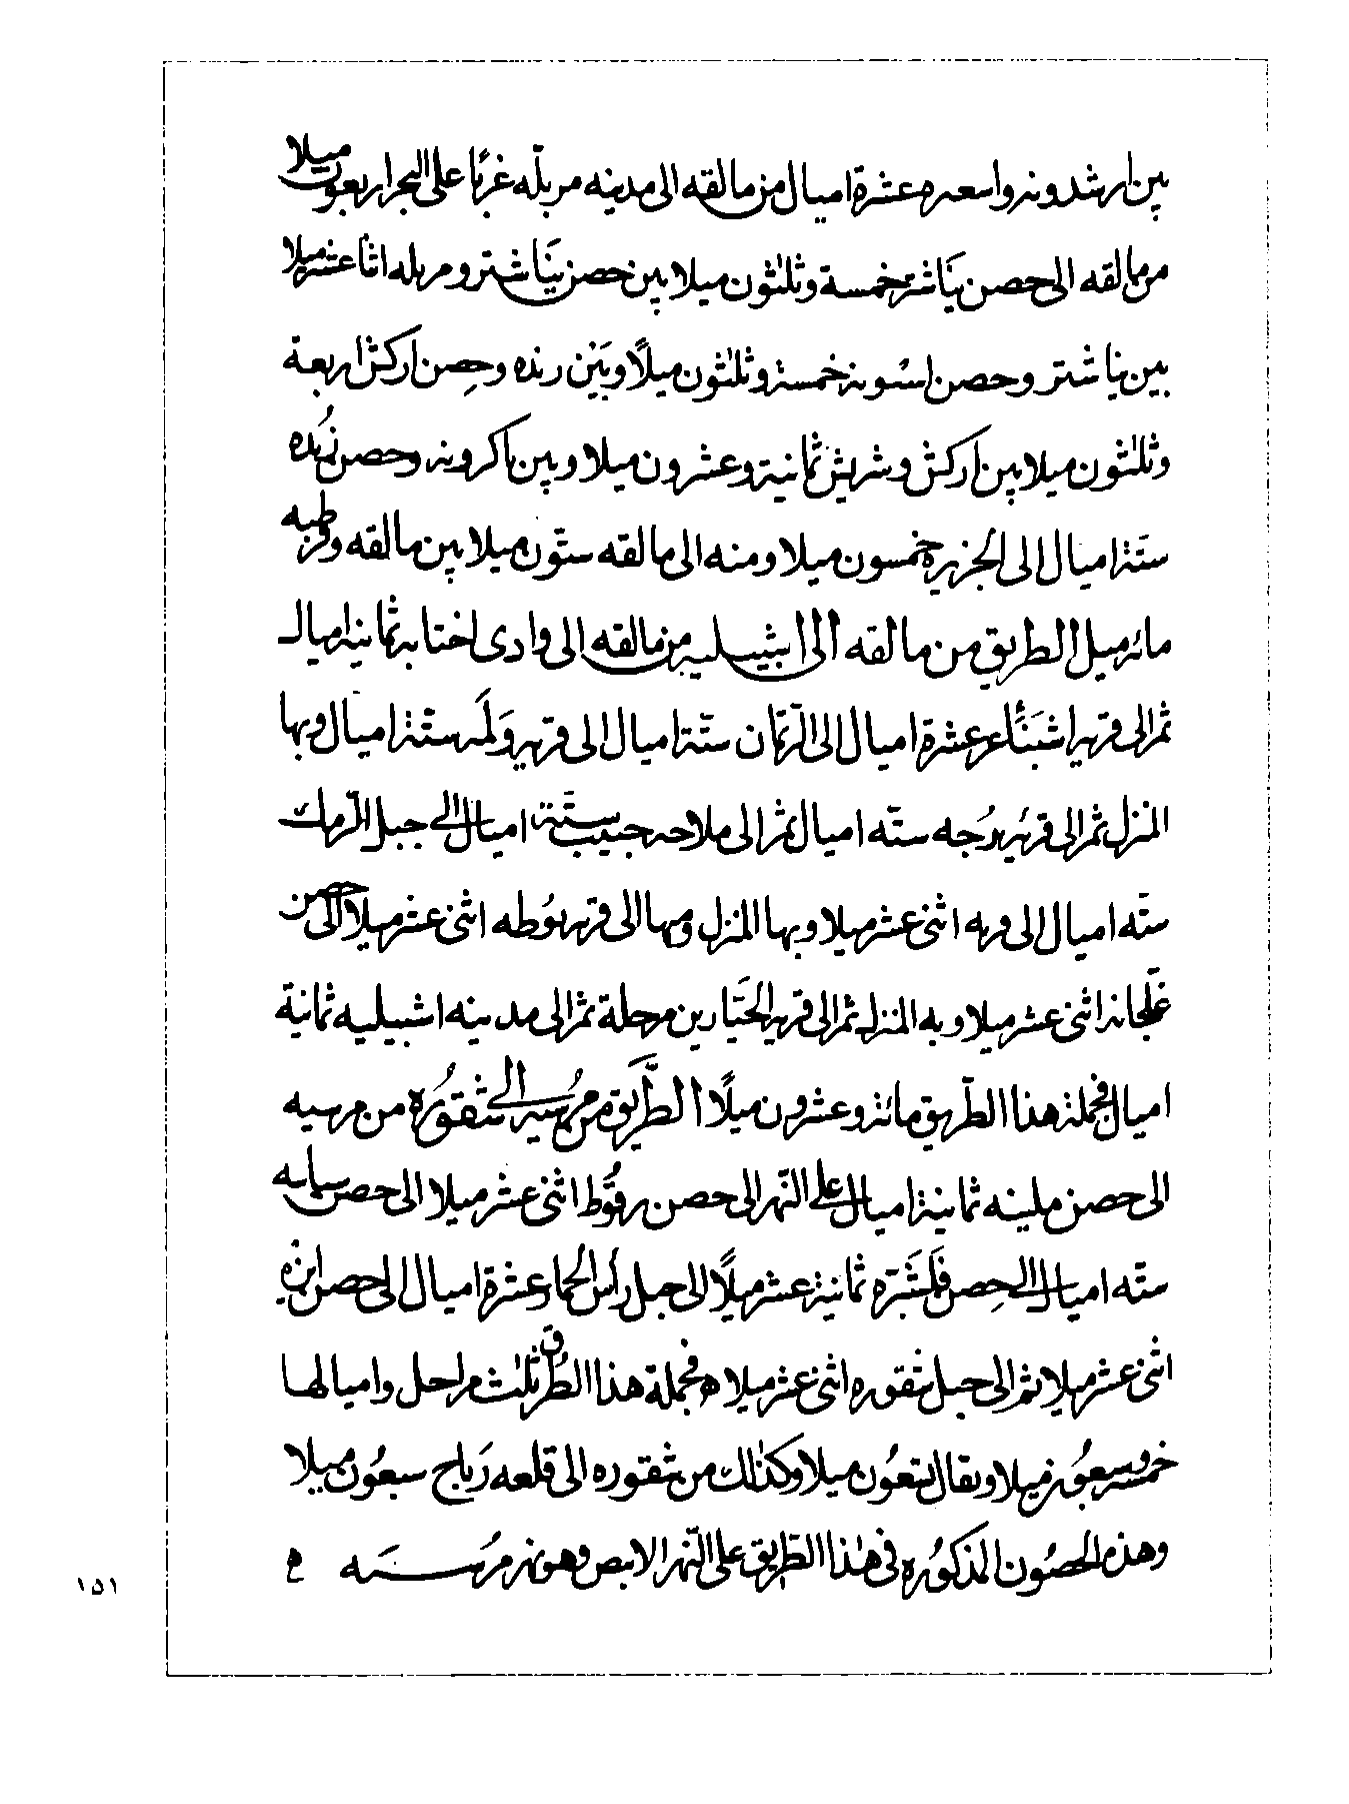 بين ارشدونه واسعره عشرة اميال من مالقه الى مدينه مربلّه غربًا على البحر اربعون ميلا
من مالقه الى حصن ببَاشتر خمسة وثلثون ميلا بين حصن ببَاشتر ومربله اثنا عشر ميلا
بين بباشتر وحصن اسُّونه خمسة وثلثون ميلًا وبَيْن رنده وحِصن اركش اربعة
وثلثون ميلا بين اركش وشريش ثمانية وعشرون ميلا وبين تاكرونه وحصن
ستَة اميال الى الجزيره خمسون ميلا ومنه الى مالقه ستّون ميلا بين مالقه وقرطبه
مائة ميل الطريق من مالقه الى اشبيليه من مالقه الى وادى اختابه ثمانية اميال
ثم الى قريه عشرة اميال الى الرّمّان ستّة اميال الى قريه وَلمَه ستّة اميال وبها
المنزل ثم الى قريه برُجه ستّه اميال ثم الى ملاحه حبيب ستّة اميال الى جبل الرّمك
ستّه اميال الى قريه اثنى عشر ميلا وبها المنزل ومنها الى قريه بوُطه اثنى عشر ميلا الى حصن
اثنى عشر ميلا وبه المنزل ثم الى قريه الحَيّارين مرحلة ثم الى مدينه اشبيليه ثمانية
اميال فجملة هذا الطّريق مائة وعشرون ميلًا الطَّرِيق من مُرسيه الى شقوُره من مرسيه
الى حصن ملينه ثمانية اميال على النّهر الى حصن رقوُّط اثنى عشر ميلا الى حصن
ستّه اميال الى حِصن قَلَشَبَرّه ثمانية عشر ميلًا الى جبل رأس الحمار عشرة اميال الى حصن
اثنى عشر ميلا ثم الى جبل شقوره اثنى عشر ميلا ه فجملة هذا الطُرق ثلث مراحل واميالها
خمس وسبعُون ميلا ويقال تسعُون ميلا وكذلك من شقوره الى قلعه رَباح سبعُون ميلا
وهذه الحصُون المذكوُره فى هذا الطّريق على النّهر الابيض وهو نهر مرُسَيه ه
١٥١